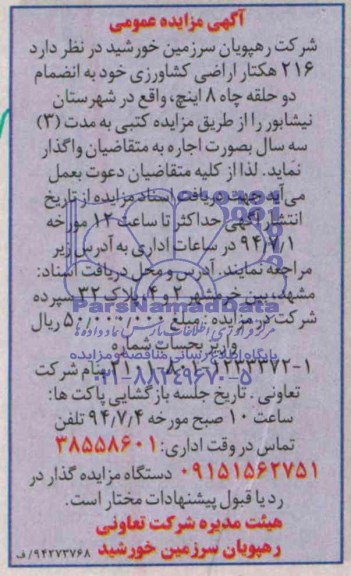 آگهی مزایده عمومی
شرکت رهپویان سرزمین خورشید در نظر دارد
۲۱۶ هکتار اراضی کشاورزی خود به انضمام
دو حلقه چاه ۸ اینچ، واقع در شهرستان
نیشابور را از طریق مزایده کتبی به مدت (۳)
سه سال بصورت اجاره به متقاضیان واگذار
نماید. لذا از کلیه متقاضیان دعوت بعمل
می‌آید جهت دریافت اسناد مزایده از تاریخ
انتشار آگهی حداکثر تا ساعت ۱۲ مورخه
۹۴/۷/۱ در ساعات اداری به آدرس زیر
مراجعه نمایند. آدرس و محل دریافت اسناد:
مشهد، بین خرمشهر ۲ و ۴، پلاک ۳۲ سپرده
شرکت در مزایده: مبلغ ریال
واریز بحساب شماره
بنام شرکت
تعاونی: تاریخ جلسه بازگشایی پاکت ها:
ساعت ۱۰ صبح مورخه ۹۴/۷/۴ تلفن
تماس در وقت اداری: ۳۸۵۵۸۶۰۱
۰۹۱۵۱۵۶۲۷۵۱ دستگاه مزایده گذار در
رد یا قبول پیشنهادات مختار است.
هیئت مدیره شرکت تعاونی
رهپویان سرزمین خورشید
۹۴۲۷۳۷۶۸/ف
ParsNamadData
پایگاه اطلاع رسانی مناقصه و مزایده
۰۲۱-۸۸۳۴۹۶۷۰-۵